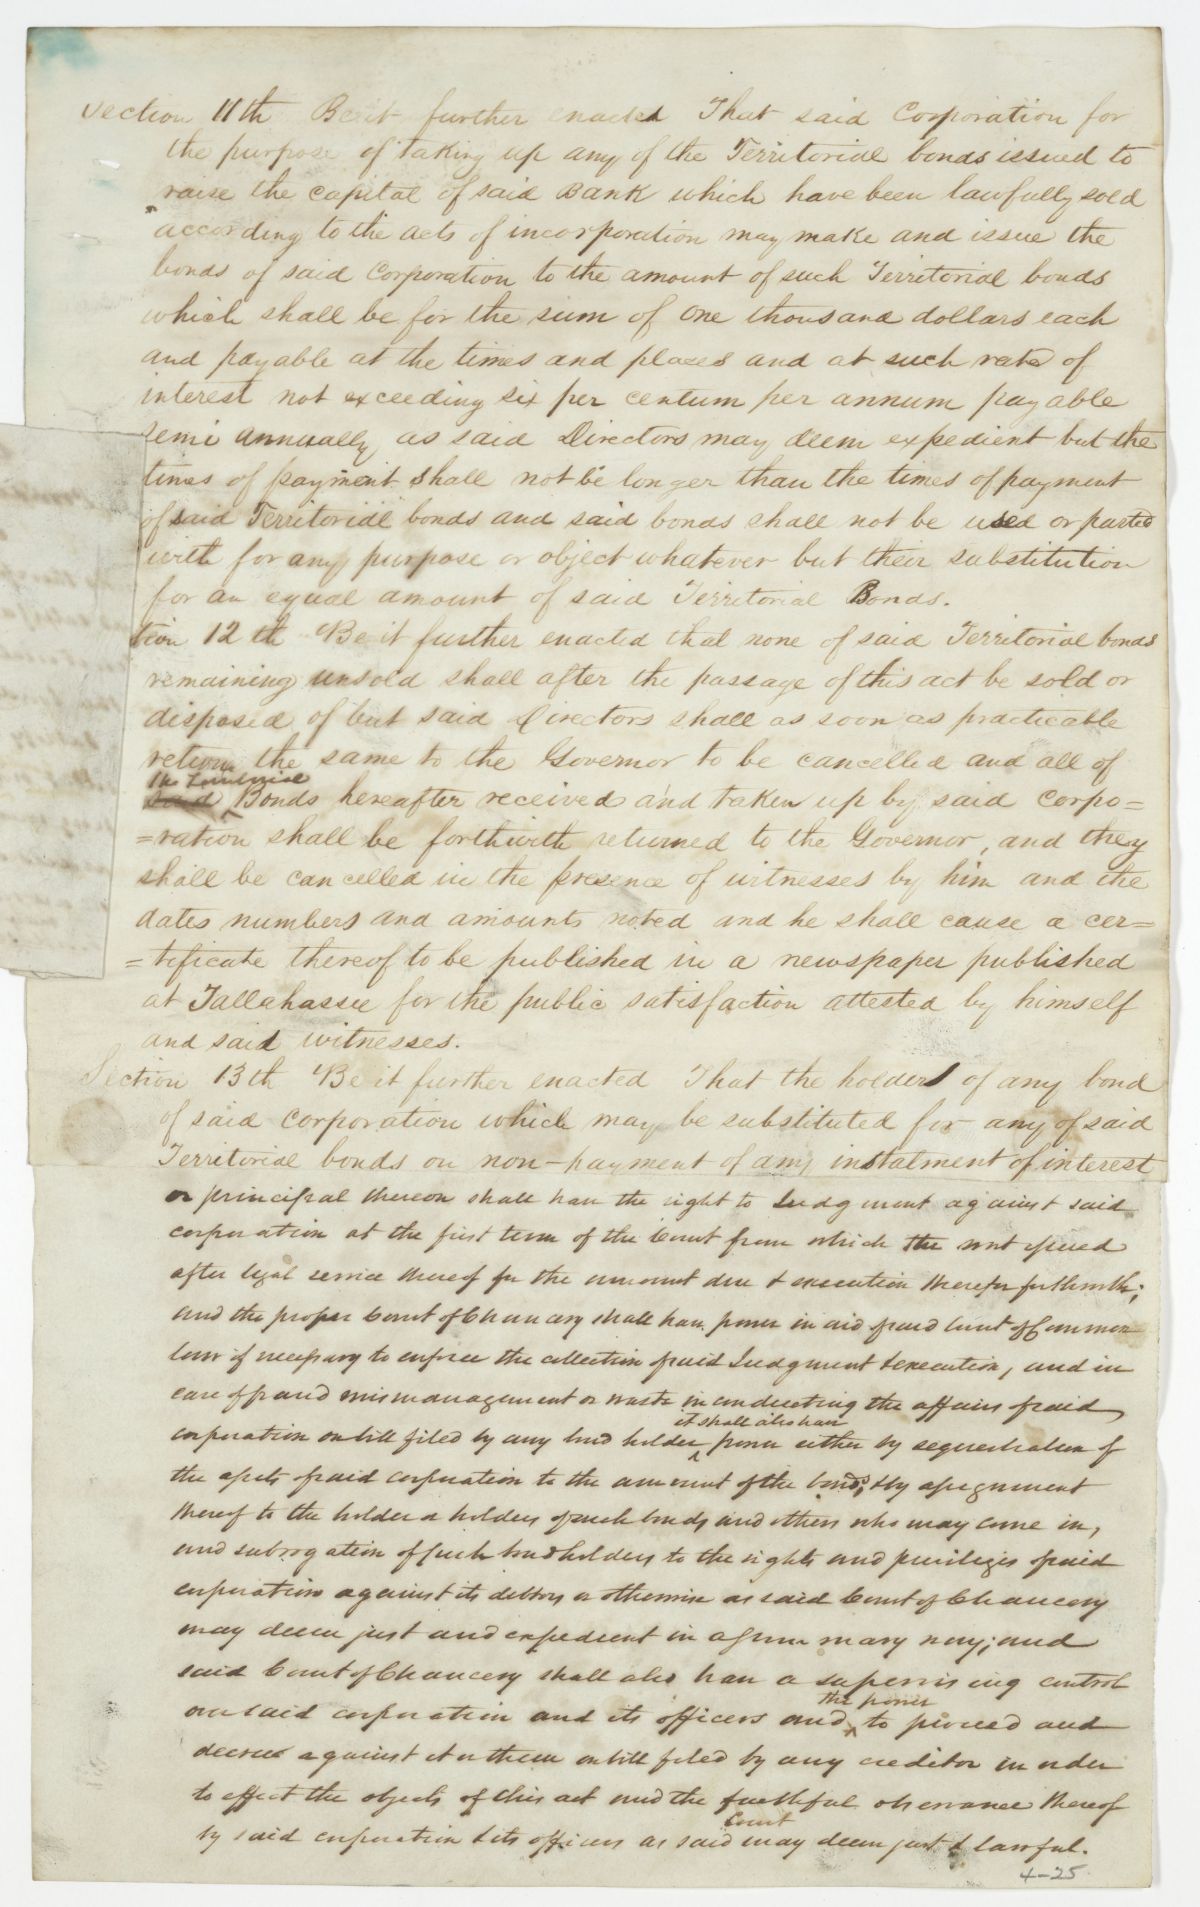 Section 11th Be it further enacted That said Corporation for
the purpose of taking up any of the Territorial bonds issued to
raise the capital of said Bank which have been lawfully sold
according to the acts of incorporation may make and issue the
bonds of said Corporation to the amount of such Territorial bonds
which shall be for the sum of One thousand dollars each
and payable at the times and places and at such rate of
interest not exceeding six per centum per annum payable
semi annually as said Directors may deem expedient but the
times of payment shall not be longer than the times of payment
of said Territorial bonds and said bonds shall not be used or parted
with for any purpose or object whatever but their substitution
for an equal amount of said Territorial Bonds.
tion 12th Be it further enacted that none of said Territorial bonds
remaining unsold shall after the passage of this act be sold or
disposed of but said Directors shall as soon as practicable
return the same to the Governor to be cancelled and all of
the Territorial
said Bonds hereafter received and taken up by said corpo=
=ration shall be forthwith returned to the Governor, and they
shall be cancelled in the presence of witnesses by him and the
dates numbers and amounts noted and he shall cause a cer=
=tificate thereof to be published in a newspaper published
at Tallahassee for the public satisfaction attested by himself
and said witnesses.
Section 13th Be it further enacted That the holders of any bond
of said Corporation which may be substituted for any of said
Territorial bonds on non-payment of any instalment of interest
or principal thereon shall have the right to Judgment against said
corporation at the first term of the Court from which the writ issued
after legal service thereof for the amount due & execution therefor forthwith;
and the proper Court of Chancery shall have power in aid of said Court of Common
law if necessary to enforce the collection of said Judgment & execution, and in
case of fraud mismanagement or waste in conducting the affairs of said
it shall also have
corporation on bill filed by any bond holder power either by sequestration of
the assets of said corporation to the amount of the bonds, by assignment
thereof to the holder or holders of such bonds and others who may come in,
and subrogation of such bondholders to the rights and privileges of said
corporation against its debtors or otherwise as said Court of Chancery
may deem just and expedient in a summary way; and
said Court of Chancery shall also have a supervising control
the power
over said corporation and its officers and to proceed and
decree against it or them on bill filed by any creditor in order
to effect the objects of this act and the faithful observance thereof
Court
by said corporation & its officers as said may deem just & lawful.
4-25